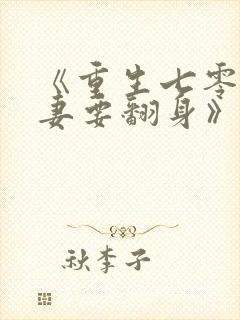 《重生七零
妻要翻身》
秋李子